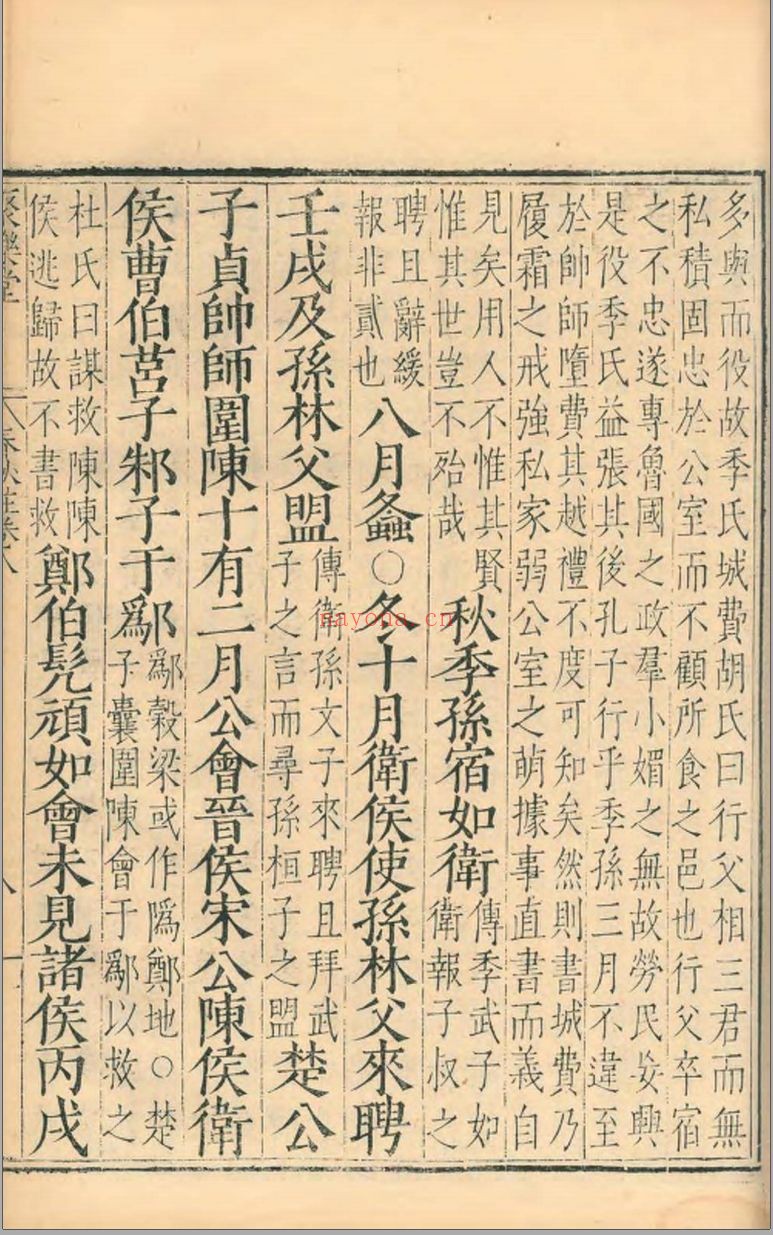 多與而役故季氏城費胡氏曰行父相三君而無
私積固忠於公室而不顧所食之邑也行父卒宿
之不忠遂專魯國之政羣小媚之無故勞民妄興
是役季氏益張其後孔子行乎季孫三月不違至
於帥師墮費其越禮不度可知矣然則書城費乃
履霜之戒強私家弱公室之萌據事直書而義自
見矣用人不惟其賢
惟其世豈不殆哉
秋季孫宿如衛
傳季武子如
衛報子叔之
聘且辭緩
報非貳也
八月螽○冬十月衛侯使孫林父來聘
壬戌及孫林父盟
傳衛孫文子來聘且拜武
子之言而尋孫桓子之盟
楚公
子貞帥師圍陳十有二月公會晉侯宋公陳侯衛
侯曹伯莒子邾子于鄬
鄬穀梁或作隖鄭地○楚
子囊圍陳會于鄬以救之
杜氏曰謀救陳陳
侯逃歸故不書救
鄭伯髠頑如會未見諸侯丙戌
聚樂堂
春秋
卷八
nayona.cn